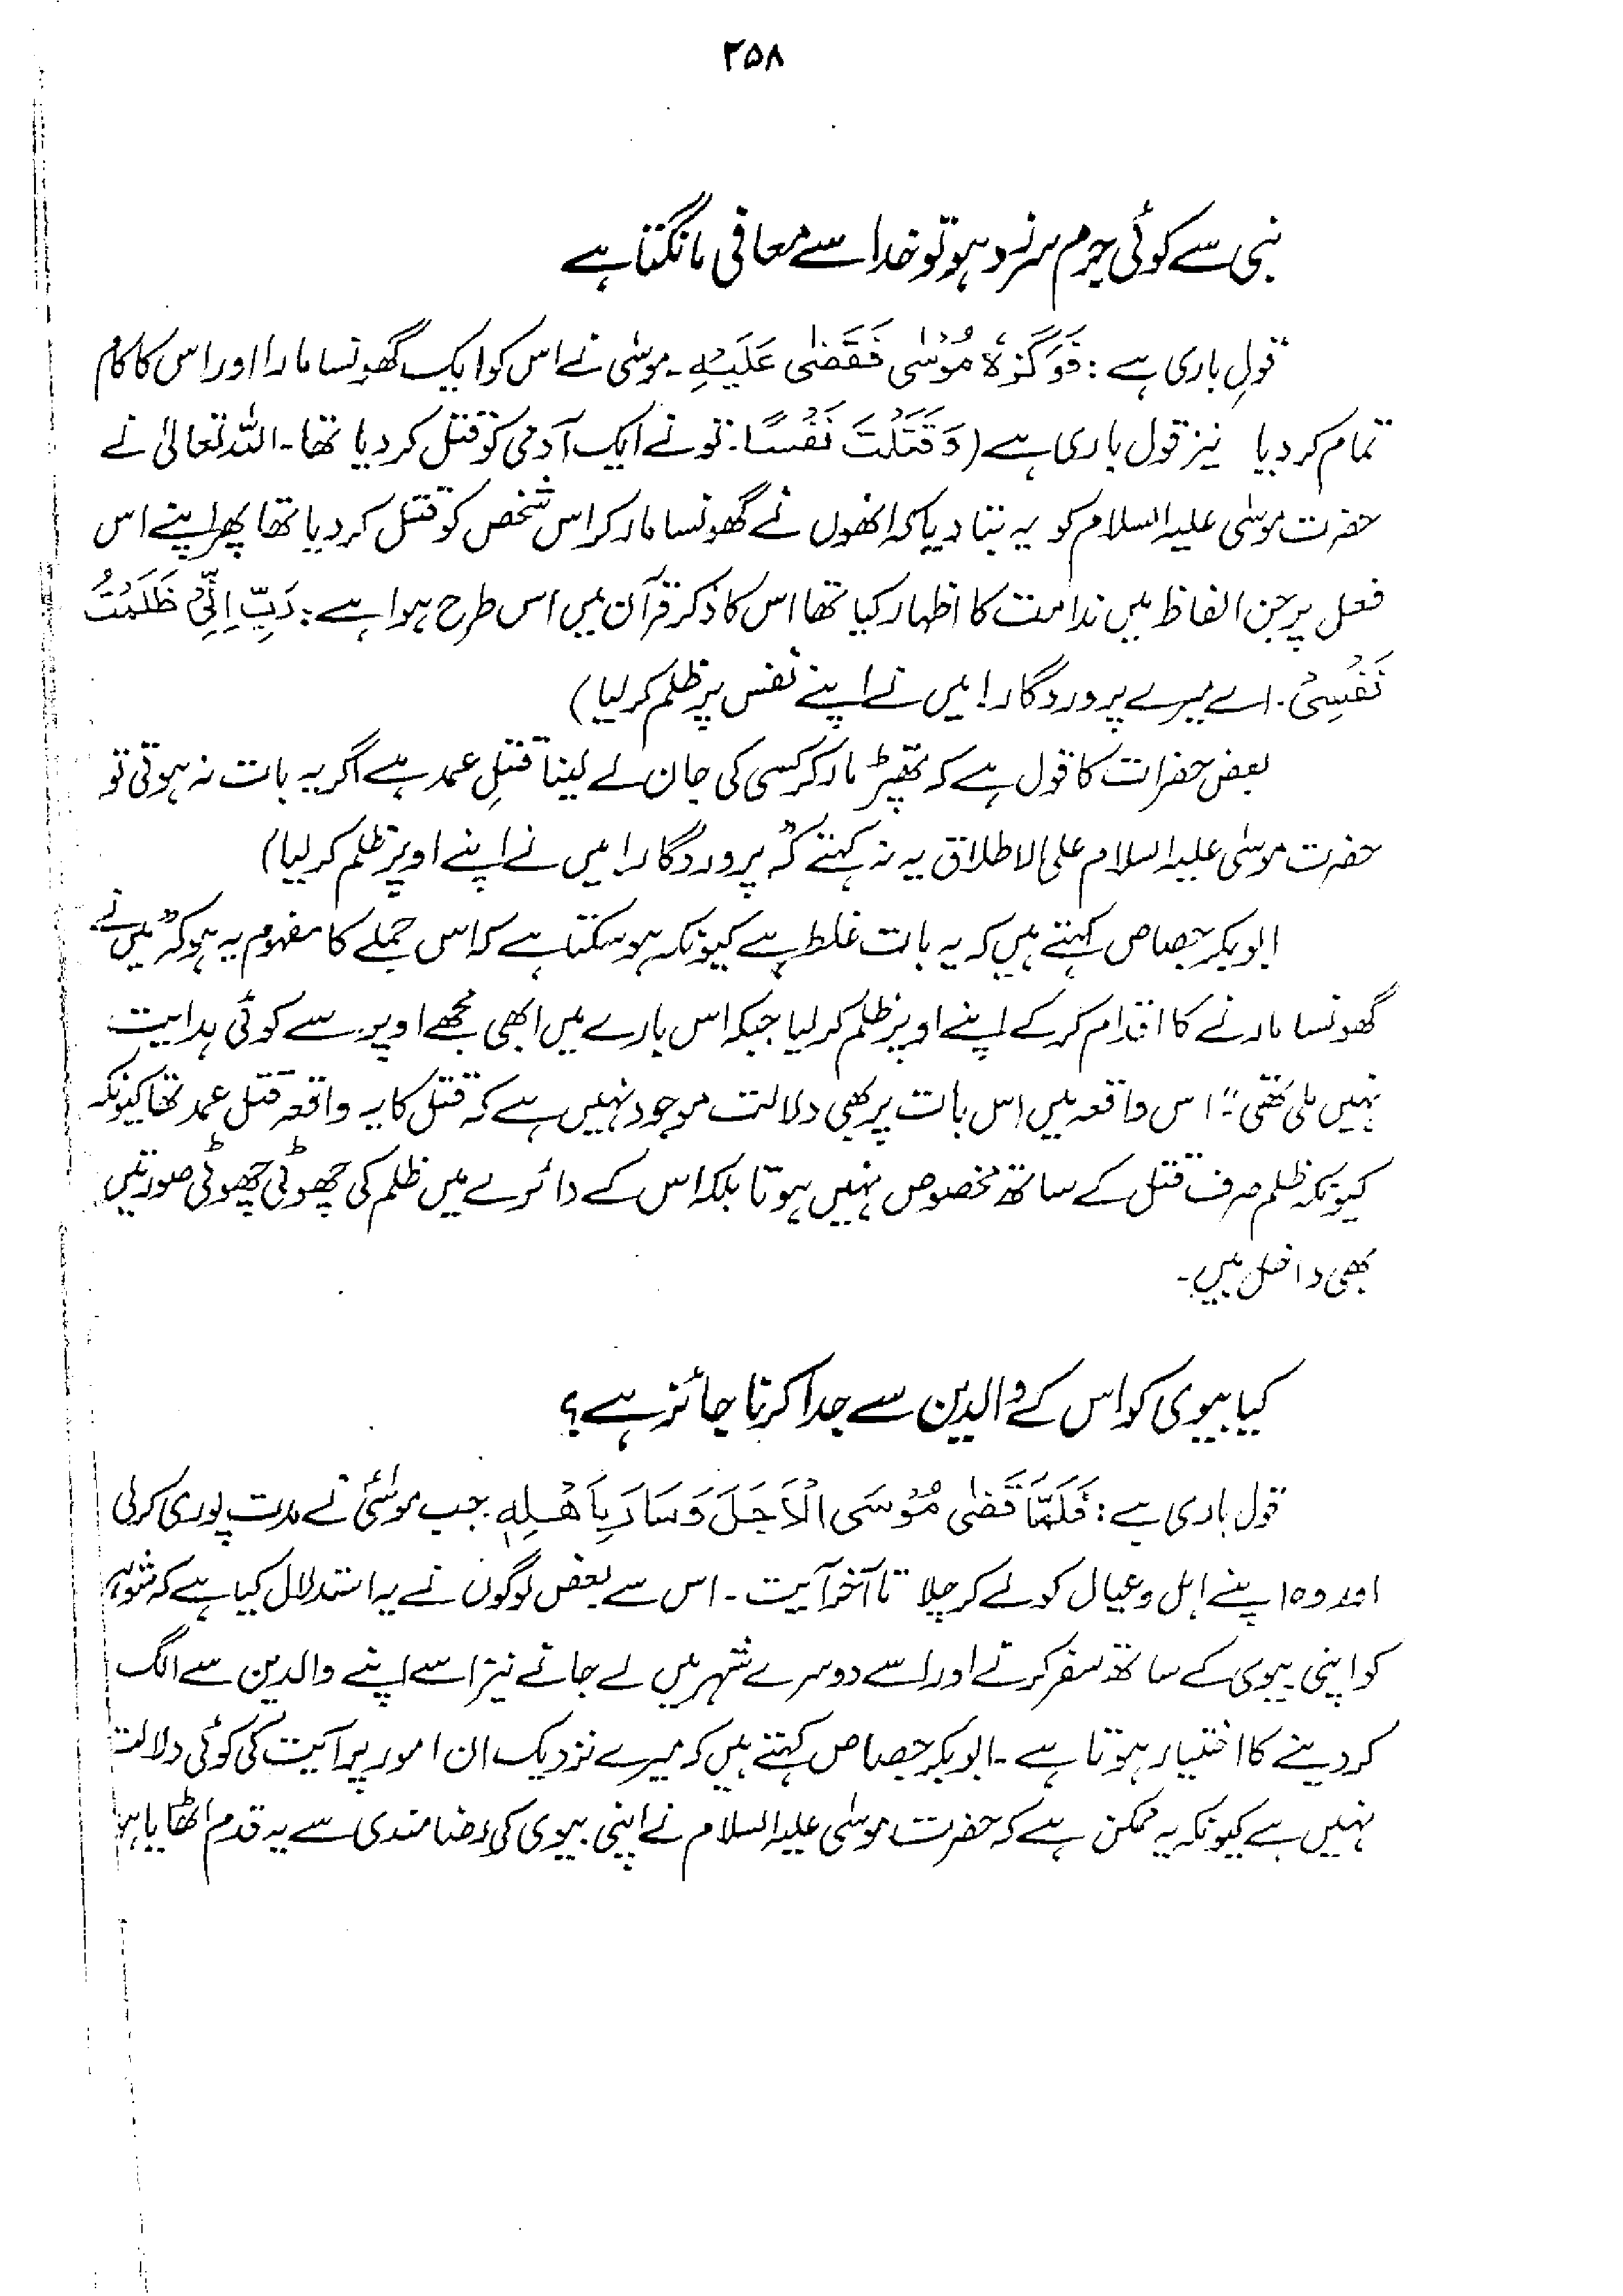 ۲۵۸
نبی سے کوئی جرم سرزد ہو تو خدا سے معافی مانگتا ہے
قولِ باری ہے : فَوَكَزَهٗ مُوْسٰى فَقَضٰى عَلَيْهِ۔ موسٰی نے اس کو ایک گھونسا مارا اور اس کا کام
تمام کر دیا نیز قول باری ہے (وَقَتَلْتَ نَفْسًا۔ تو نے ایک آدمی کو قتل کر دیا تھا۔ اللہ تعالیٰ نے
حضرت موسٰی علیہ السلام کو یہ بتا دیا کہ انھوں نے گھونسا مار کر اس شخص کو قتل کر دیا تھا پھر اپنے اس
فعل پر جن الفاظ میں ندامت کا اظہار کیا تھا اس کا ذکر قرآن میں اس طرح ہوا ہے : رَبِّ اِنِّيْ ظَلَمْتُ
نَفْسِيْ۔ اے میرے پروردگار! میں نے اپنے نفس پر ظلم کر لیا)
بعض حضرات کا قول ہے کہ تھپڑ مار کر کسی کی جان لے لینا قتلِ عمد ہے اگر یہ بات نہ ہوتی تو
حضرت موسٰی علیہ السلام علی الاطلاق یہ نہ کہتے کہ "پروردگارا میں نے اپنے اوپر ظلم کر لیا)
ابو بکر جصاص کہتے ہیں کہ یہ بات غلط ہے کیونکہ ہو سکتا ہے کہ اس جملے کا مفہوم یہ ہو کہ "میں نے
گھونسا مارنے کا اقدام کر کے اپنے اوپر ظلم کر لیا جبکہ اس بارے میں ابھی مجھے اوپر سے کوئی ہدایت
نہیں ملی تھی"۔ اس واقعہ میں اس بات پر بھی دلالت موجود نہیں ہے کہ قتل کا یہ واقعہ قتل عمد تھا کیونکہ
کیونکہ ظلم صرف قتل کے ساتھ مخصوص نہیں ہوتا بلکہ اس کے دائرے میں ظلم کی چھوٹی چھوٹی صورتیں
بھی داخل ہیں۔
کیا بیوی کو اس کے والدین سے جدا کرنا جائز ہے؟
قول باری ہے : فَلَمَّا قَضٰى مُوْسَى الْاَجَلَ وَسَارَ بِاَهْلِهٖ۔ جب موسٰیؑ نے مدت پوری کر لی
اور وہ اپنے اہل و عیال کو لے کر چلا تا آخر آیت۔ اس سے بعض لوگوں نے یہ استدلال کیا ہے کہ شوہر
کو اپنی بیوی کے ساتھ سفر کرنے اور اسے دوسرے شہر میں لے جانے نیز اسے اپنے والدین سے الگ
کر دینے کا اختیار ہوتا ہے۔ ابو بکر جصاص کہتے ہیں کہ میرے نزدیک ان امور پر آیت کی کوئی دلالت
نہیں ہے کیونکہ یہ ممکن ہے کہ حضرت موسٰی علیہ السلام نے اپنی بیوی کی رضامندی سے یہ قدم اٹھایا ہو